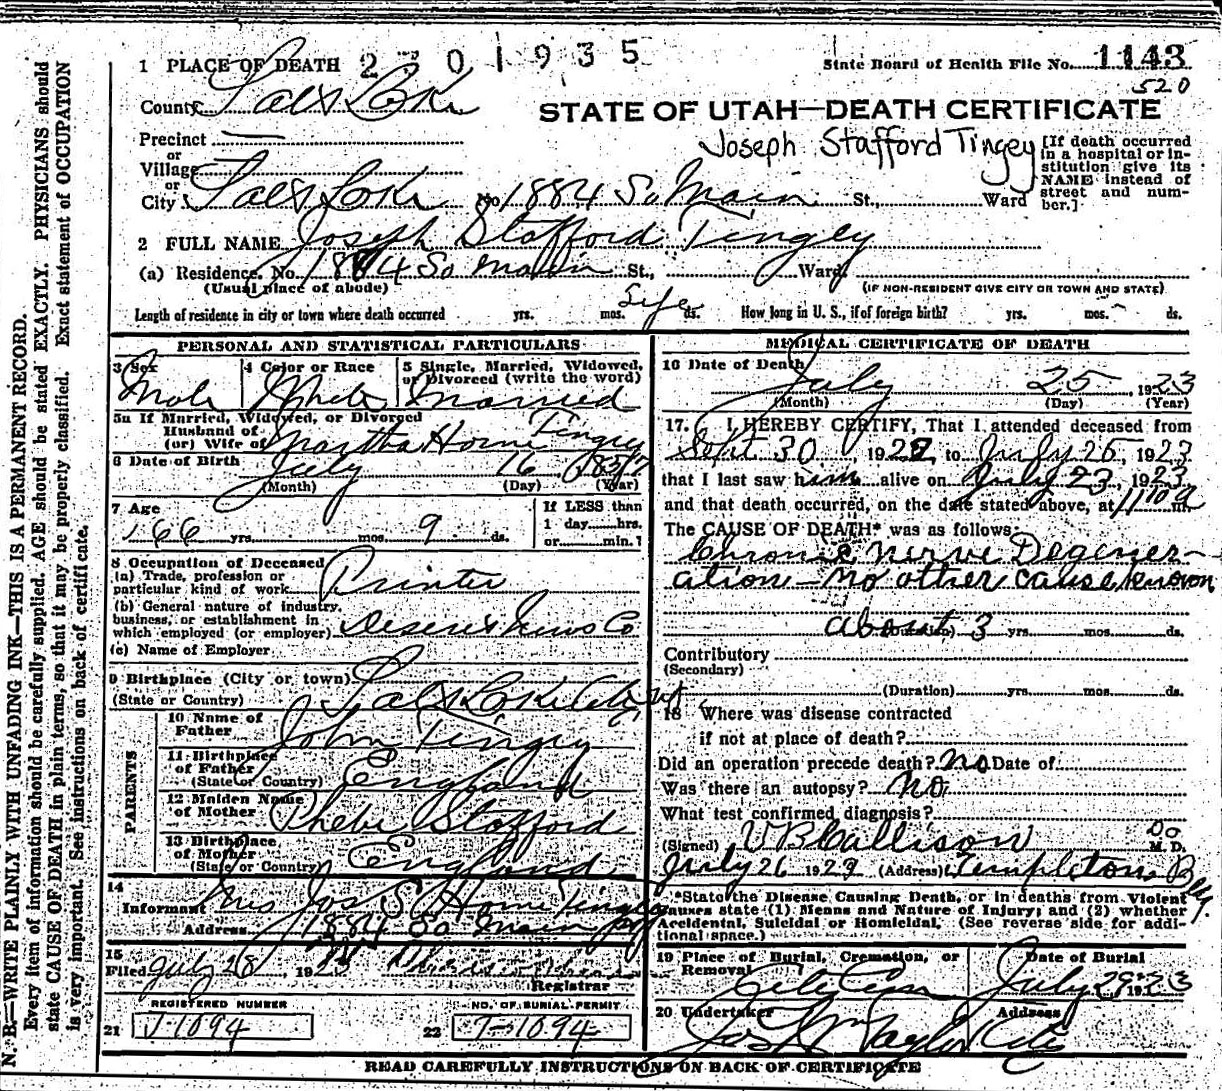 1 PLACE OF DEATH 2 3 0 1 9 3 5
State Board of Health File No. 1143
520
County Salt Lake
STATE OF UTAH—DEATH CERTIFICATE
Precinct
or
Village
or
City Salt Lake No. 1884 So Main St., Ward
Joseph Stafford Tingey
[If death occurred in a hospital or institution give its NAME instead of street and number.]
2 FULL NAME Joseph Stafford Tingey
(a) Residence. No. 1884 So Main St., Ward.
(Usual place of abode) (IF NON-RESIDENT GIVE CITY OR TOWN AND STATE)
Length of residence in city or town where death occurred yrs. mos. Life ds. How long in U. S., if of foreign birth? yrs. mos. ds.
PERSONAL AND STATISTICAL PARTICULARS
3 Sex
Male
4 Color or Race
White
5 Single, Married, Widowed, or Divorced (write the word)
Married
5a If Married, Widowed, or Divorced
Husband of
(or) Wife of Martha Horne Tingey
6 Date of Birth
July 16 1857
(Month) (Day) (Year)
7 Age
66 yrs. mos. 9 ds.
If LESS than
1 day hrs.
or min.
8 Occupation of Deceased
(a) Trade, profession or
particular kind of work Printer
(b) General nature of industry,
business, or establishment in
which employed (or employer) Deseret News Co
(c) Name of Employer
9 Birthplace (City or town) Salt Lake City Ut
(State or Country)
PARENTS
10 Name of
Father John Tingey
11 Birthplace
of Father
(State or Country) England
12 Maiden Name
of Mother Phebe Stafford
13 Birthplace
of Mother
(State or Country) England
14
Informant Mrs Jos S Horne Tingey
Address 1884 So Main
15
Filed July 28, 1923
Registrar
REGISTERED NUMBER
21 J-1094
NO. OF BURIAL PERMIT
22 J-1094
MEDICAL CERTIFICATE OF DEATH
16 Date of Death
July 25, 1923
(Month) (Day) (Year)
17. I HEREBY CERTIFY, That I attended deceased from
Sept 30 1922, to July 25, 1923
that I last saw him alive on July 23, 1923
and that death occurred, on the date stated above, at 11 10 a m.
The CAUSE OF DEATH* was as follows:
Chronic Nerve Degener-
ation — no other cause known
about 3 yrs. mos. ds.
Contributory
(Secondary)
(Duration) yrs. mos. ds.
18 Where was disease contracted
if not at place of death?
Did an operation precede death? No Date of
Was there an autopsy? No
What test confirmed diagnosis?
(Signed) Callison Do M. D.
July 26 1923 (Address) Templeton Bldg.
*State the Disease Causing Death, or in deaths from Violent
Causes state (1) Means and Nature of Injury; and (2) whether
Accidental, Suicidal or Homicidal. (See reverse side for addi-
tional space.)
19 Place of Burial, Cremation, or
Removal
City Cem
Date of Burial
July 29 1923
20 Undertaker
Taylor
Address
City
READ CAREFULLY INSTRUCTIONS ON BACK OF CERTIFICATE
N. B.—WRITE PLAINLY WITH UNFADING INK—THIS IS A PERMANENT RECORD.
Every item of information should be carefully supplied. AGE should be stated EXACTLY. PHYSICIANS should
state CAUSE OF DEATH in plain terms, so that it may be properly classified. Exact statement of OCCUPATION
is very important. See instructions on back of certificate.